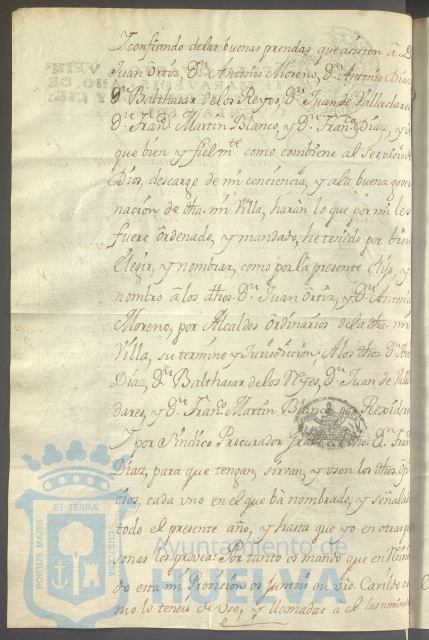 Y confiando delas buenas prendas, que asisten â D.ⁿ
Juan Ôrtiz, D.ⁿ Antonio Moreno, D.ⁿ Antonio Diaz
D.ⁿ Balthasar delos Reyes, D.ⁿ Juan de Valladares
D.ⁿ Fran.co Martin Blanco, y D.ⁿ Fran.co Diaz, y
que bien y fielm.te como combiene al Servicio de
Dios, descargo de mi conciencia, y ala buena gover
nacion de dha. mi Villa, harân lo que por mi les
fuere ôrdenado, y mandado, he tenido por bien
Elegir, y nombrar, como porla presente Elijo, y
nombro â los dhos. D.ⁿ Juan Ôrtiz, y D.ⁿ Antonio
Moreno, por Alcaldes Ôrdinarios dela dha. mi
Villa, su termino y Jurisdiccion; A los dhos. D.ⁿ Ant.
Diaz, D.ⁿ Balthasar delos Reyes, D.ⁿ Juan de Valla
dares, y D.ⁿ Fran.co Martin Blanco, por Rexidores
Y por Sindico Procurador Gral. D.ⁿ Fran.co
Diaz, para que tengan, sirvan, y usen los dhos. ofi
cios, cada uno en el que bâ nombrado, y señalado
todo el presente año, y hasta que yo en otras per
sonas los provea: Por tanto os mando que en
do esta mi Provision os junteis en vro. Cavildo co
mo lo teneis de uso, y llamadas a el las
PORTUS MARIS ET TERRAE CUSTODIA
Ayuntamiento de
HUELVA